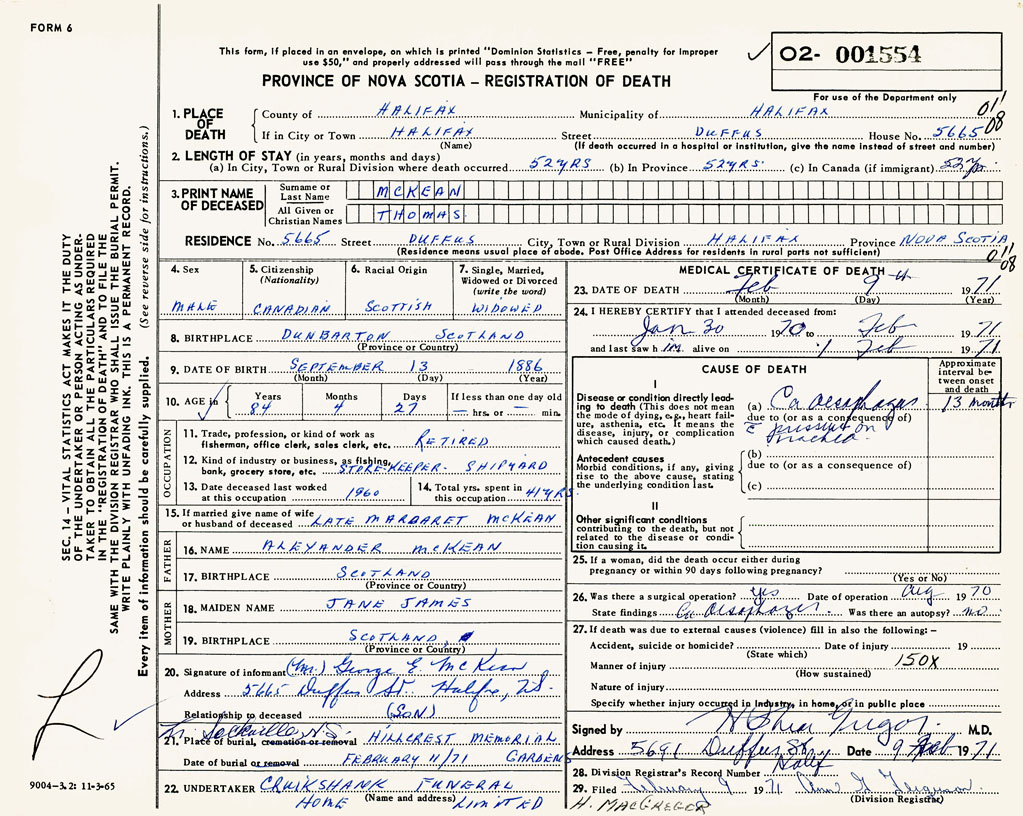 FORM 6
This form, if placed in an envelope, on which is printed "Dominion Statistics – Free, penalty for improper
use $50," and properly addressed will pass through the mail "FREE"
PROVINCE OF NOVA SCOTIA – REGISTRATION OF DEATH
O2- 001554
For use of the Department only
011
08
1. PLACE OF DEATH
County of HALIFAX Municipality of HALIFAX
If in City or Town HALIFAX Street DUFFUS House No. 5665
(Name) (If death occurred in a hospital or institution, give the name instead of street and number)
2. LENGTH OF STAY (in years, months and days)
(a) In City, Town or Rural Division where death occurred 52 YRS (b) In Province 52 YRS. (c) In Canada (if immigrant) 52 yrs
3. PRINT NAME OF DECEASED
Surname or Last Name MCKEAN
All Given or Christian Names THOMAS
RESIDENCE No. 5665 Street DUFFUS City, Town or Rural Division HALIFAX Province NOVA SCOTIA
(Residence means usual place of abode. Post Office Address for residents in rural parts not sufficient)
011
08
4. Sex
MALE
5. Citizenship
(Nationality)
CANADIAN
6. Racial Origin
SCOTTISH
7. Single, Married,
Widowed or Divorced
(write the word)
WIDOWED
8. BIRTHPLACE DUNBARTON SCOTLAND
(Province or Country)
9. DATE OF BIRTH SEPTEMBER 13 1886
(Month) (Day) (Year)
10. AGE in
Years Months Days If less than one day
84 4 27 — hrs. or — min.
OCCUPATION
11. Trade, profession, or kind of work as
fisherman, office clerk, sales clerk, etc. RETIRED
12. Kind of industry or business, as fishing,
bank, grocery store, etc. STORE-KEEPER- SHIPYARD
13. Date deceased last worked
at this occupation 1960
14. Total yrs. spent in
this occupation 41 YRS
15. If married give name of wife
or husband of deceased LATE MARGARET MCKEAN
FATHER
16. NAME ALEXANDER MCKEAN
17. BIRTHPLACE SCOTLAND
(Province or Country)
MOTHER
18. MAIDEN NAME JANE JAMES
19. BIRTHPLACE SCOTLAND
(Province or Country)
20. Signature of informant (Mr.) George E. McKean
Address 5665 Duffus St. Halifax, N.S.
Relationship to deceased (SON)
Sackville, N.S.
21. Place of burial, cremation or removal HILLCREST MEMORIAL
GARDENS
Date of burial or removal FEBRUARY 11/71
22. UNDERTAKER CRUIKSHANK FUNERAL
HOME (Name and address) LIMITED
MEDICAL CERTIFICATE OF DEATH
23. DATE OF DEATH Feb 9th 1971
(Month) (Day) (Year)
24. I HEREBY CERTIFY that I attended deceased from:
Jan 30 1970 to Feb 1971
and last saw him alive on 1 Feb 1971
CAUSE OF DEATH
Approximate interval between onset and death
I
Disease or condition directly leading to death (This does not
mean the mode of dying, e.g., heart failure,
asthenia, etc. It means the
disease, injury, or complication
which caused death.)
(a) Ca Oesophagus 13 months
due to (or as a consequence of)
c̄ pressure on
trachea.
Antecedent causes
Morbid conditions, if any, giving
rise to the above cause, stating
the underlying condition last.
(b)
due to (or as a consequence of)
(c)
II
Other significant conditions
contributing to the death, but not
related to the disease or condition
causing it.
25. If a woman, did the death occur either during
pregnancy or within 90 days following pregnancy?
(Yes or No)
26. Was there a surgical operation? yes Date of operation Aug 1970
State findings Ca Oesophagus. Was there an autopsy? no
27. If death was due to external causes (violence) fill in also the following: –
Accident, suicide or homicide? Date of injury 19
(State which)
150X
Manner of injury
(How sustained)
Nature of injury
Specify whether injury occurred in industry, in home, or in public place
Signed by M.D.
Address 5691 Duffus St Date 9 Feb 1971
Halifax
28. Division Registrar's Record Number
29. Filed February 9 1971 Ann G Ferguson
(Division Registrar)
H. MACGREGER
SEC. 14 – VITAL STATISTICS ACT MAKES IT THE DUTY
OF THE UNDERTAKER OR PERSON ACTING AS UNDERTAKER
TO OBTAIN ALL THE PARTICULARS REQUIRED
IN THE "REGISTRATION OF DEATH" AND TO FILE THE
SAME WITH THE DIVISION REGISTRAR WHO SHALL ISSUE THE BURIAL PERMIT.
WRITE PLAINLY WITH UNFADING INK. THIS IS A PERMANENT RECORD.
Every item of information should be carefully supplied. (See reverse side for instructions.)
9004-3.2: 11-3-65